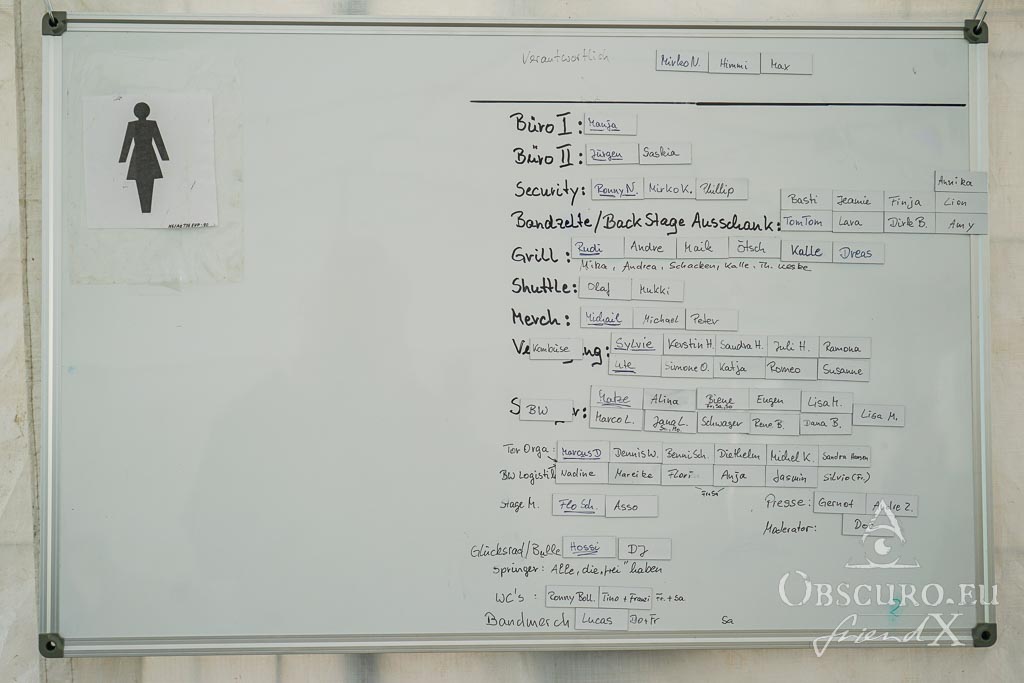 Verantwortlich Mirko N. Himmi Max
Büro I: Manja
Büro II: Jürgen Saskia
Annika
Security: Ronny N. Mirko K. Phillip
Basti Jeanie Finja Lion
Bandzelte/BackStage Ausschank: TomTom Lara Dirk B. Amy
Grill: Rudi Andre Maik Ötsch Kalle Dreas
Mika, Andrea, Schacken, Kalle, Th.
Shuttle: Olaf Mukki
Merch: Michail Michael Peter
Ve Kombüse ng: Sylvie Kerstin H. Sandra H. Juli H. Ramona
Ute Simone O. Katja Romeo Susanne
Matze Alina Biene Eugen Lisa M.
S BW : Lisa M.
Marco L. Jana L. Schwager Rene B. Dana B.
Tor Orga: Marcus D Dennis W. Benni Sch. Diethelm Michel K. Sandra
BW Logistik Nadine Mareike Flori Anja Jasmin Silvio (Fr.)
Fr+Sa
Stage M. Flo Sch. Asso Presse: Gernot Andre Z.
Moderator: Doc
Glücksrad/Bulle Hossi DJ
Springer: Alle, die „frei" haben
WC's: Ronny Boll. Tino + Franzi Fr. + Sa
Bandmerch Lucas Do+Fr Sa
2
OBSCURO.EU
friendX